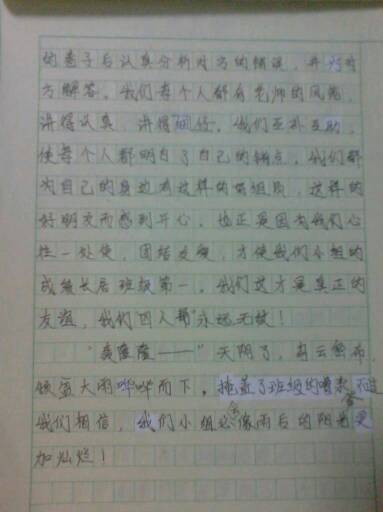 的卷子后认真分析对方的错误，并为对
方解答。我们每个人都有老师的风范，
讲得认真，讲得细致。我们互补互助，
使每个人都明白了自己的缺点。我们都
为自己的身边有这样的好组员，这样的
好朋友而感到开心。也正是因为我们心
往一处使，团结友爱，才使我们小组的
成绩长居班级第一。我们这才是真正的
友谊，我们四人帮永远无敌！
“轰隆隆——”天阴了，乌云密布，
倾盆大雨哗哗而下，掩盖了班级的嘈杂
我们相信，我们小组必会像雨后的阳光更
加灿烂！